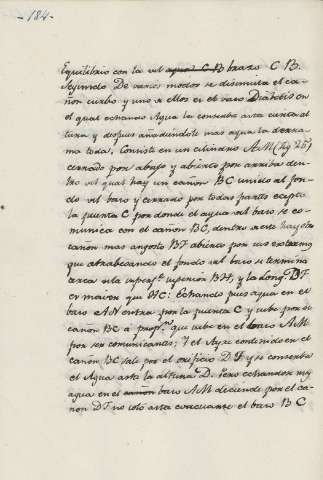 -184-
Equilibrio con la del agua C B brazo C B.
Segundo De varios modos se disimula el ca-
ñon curbo y uno de ellos es el vaso Diabetis en
el qual echando Agua la conserba asta cierta al
tura y despues añadiendole mas agua la derra-
ma toda, Consiste en un cilindro A M (fig 25)
cerrado por abajo y abierto por arriba den-
tro del qual hay un cañon BC unido al fon-
do del baso y cerrado por todas partes exepto
la puenta C por donde el agua del baso se co-
munica con el cañon BC, dentro de este hay otro
cañon mas angosto DF abierto por sus extremos
que atrabesando el fondo del baso se termina
cerca de la superior BH, y la long. DF
es mayor que HC: Echando pues agua en el
baso AN entra por la puenta C y sube por el
cañon BC a que sube en el baso AM
por ser comunicantes; Y el Ayre contenido en el
cañon BC sale por el orificio D F y se conserba
el Agua asta la altura D. Pero echandose mas
agua en el cañon baso AM deciende por el ca-
ñon DF no solo asta evacuarse el baso BC